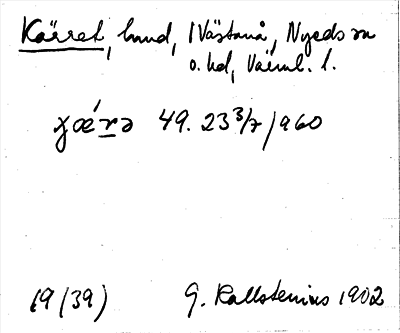 Käret, land, Västanå, Nyeds sn
o. hd, Värml. l.
49. 23 3/7 1960
19 (39) G. Kallstenius 1902